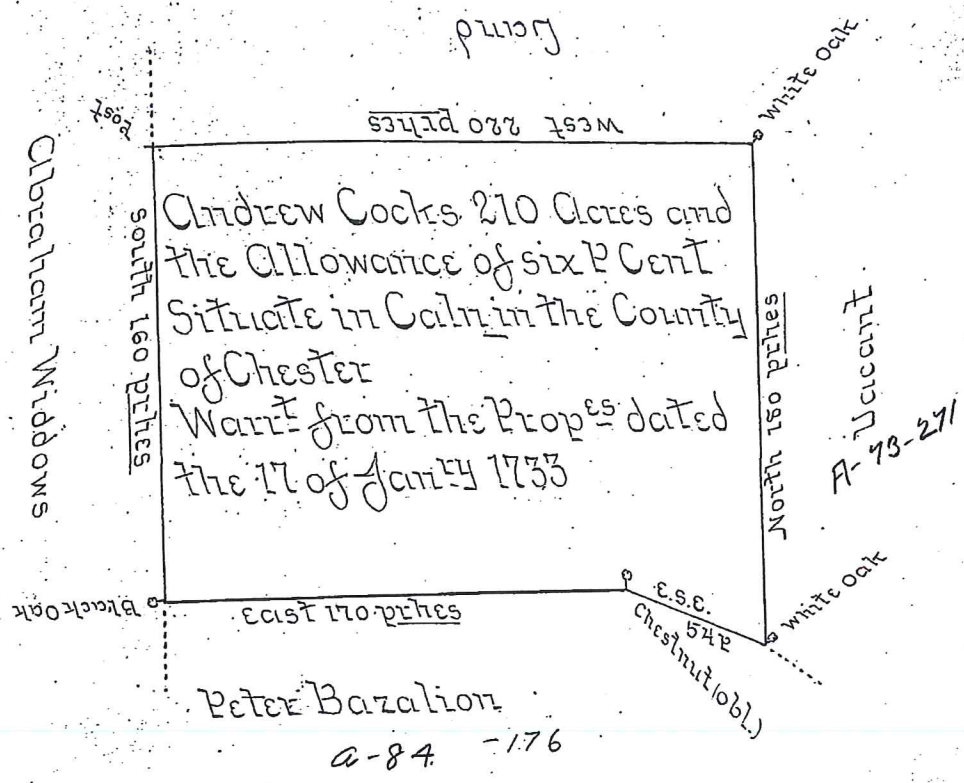 Land
West 220 prhes
White Oak
Post
Abraham Widdows
South 160 prhes
Andrew Cocks 210 Acres and
the Allowance of six P Cent
Situate in Caln in the County
of Chester
Warrt from the Propes dated
the 17 of Janry 1733
North 180 prhes
Vacant
A-73-271
Black Oak
East 170 prhes
E.S.E.
54P
Chestnut (obl.)
White Oak
Peter Bazalion
A-84 -176